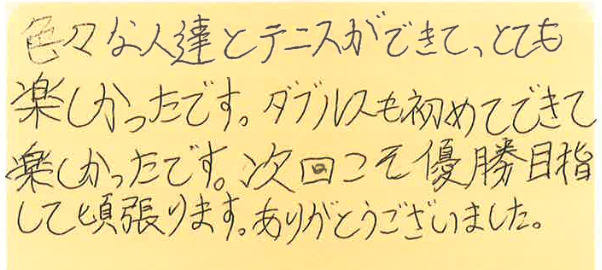 色々な人達とテニスができて、とても
楽しかったです。ダブルスも初めてできて
楽しかったです。次回こそ優勝目指
して頑張ります。ありがとうございました。